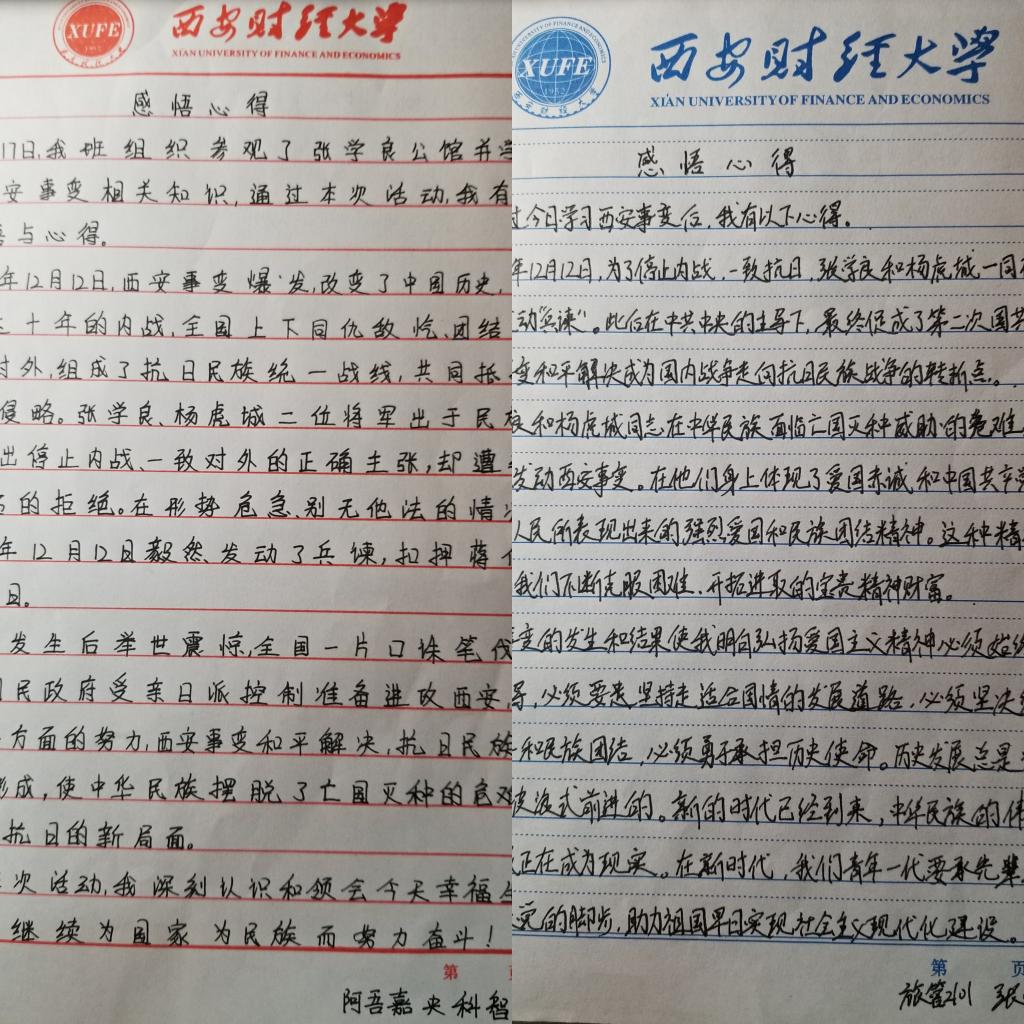 XUFE
1952
西安财经大学
XI'AN UNIVERSITY OF FINANCE AND ECONOMICS
感悟心得
17日,我班组织参观了张学良公馆并学
安事变相关知识,通过本次活动,我有
与心得。
年12月12日,西安事变爆发,改变了中国历史,
十年的内战,全国上下同仇敌忾、团结
对外,组成了抗日民族统一战线,共同抵
侵略。张学良、杨虎城二位将军出于民
出停止内战、一致对外的正确主张,却遭
的拒绝。在形势危急、别无他法的情
年12月12日毅然发动了兵谏,扣押蒋
日。
发生后举世震惊,全国一片口诛笔伐
民政府受亲日派控制准备进攻西安
方面的努力,西安事变和平解决,抗日民族
形成,使中华民族摆脱了亡国灭种的危难
抗日的新局面。
次活动,我深刻认识和领会今天幸福
继续为国家为民族而努力奋斗!
第
阿吾嘉央科智
XUFE
1952
西安财经大学
XI'AN UNIVERSITY OF FINANCE AND ECONOMICS
感悟心得
过今日学习西安事变后,我有以下心得。
年12月12日,为了停止内战,一致抗日,张学良和杨虎城一同
动“兵谏”。此后在中共中央的主导下,最终促成了第二次国共
变和平解决成为国内战争走向抗日民族战争的转折点。
良和杨虎城同志在中华民族面临亡国灭种威胁的危难
发动西安事变。在他们身上体现了爱国赤诚和中国共产党
人民所表现出来的强烈爱国和民族团结精神。这种精
我们不断克服困难,开拓进取的宝贵精神财富。
变的发生和结果使我明白弘扬爱国主义精神必须始终
导,必须要走坚持走适合国情的发展道路,必须坚决
和民族团结,必须勇于承担历史使命。历史发展总是
波浪式前进的。新的时代已经到来,中华民族的伟
正在成为现实。在新时代,我们青年一代要承先辈
的脚步,助力祖国早日实现社会主义现代化建设。
第 页
旅管2101 张